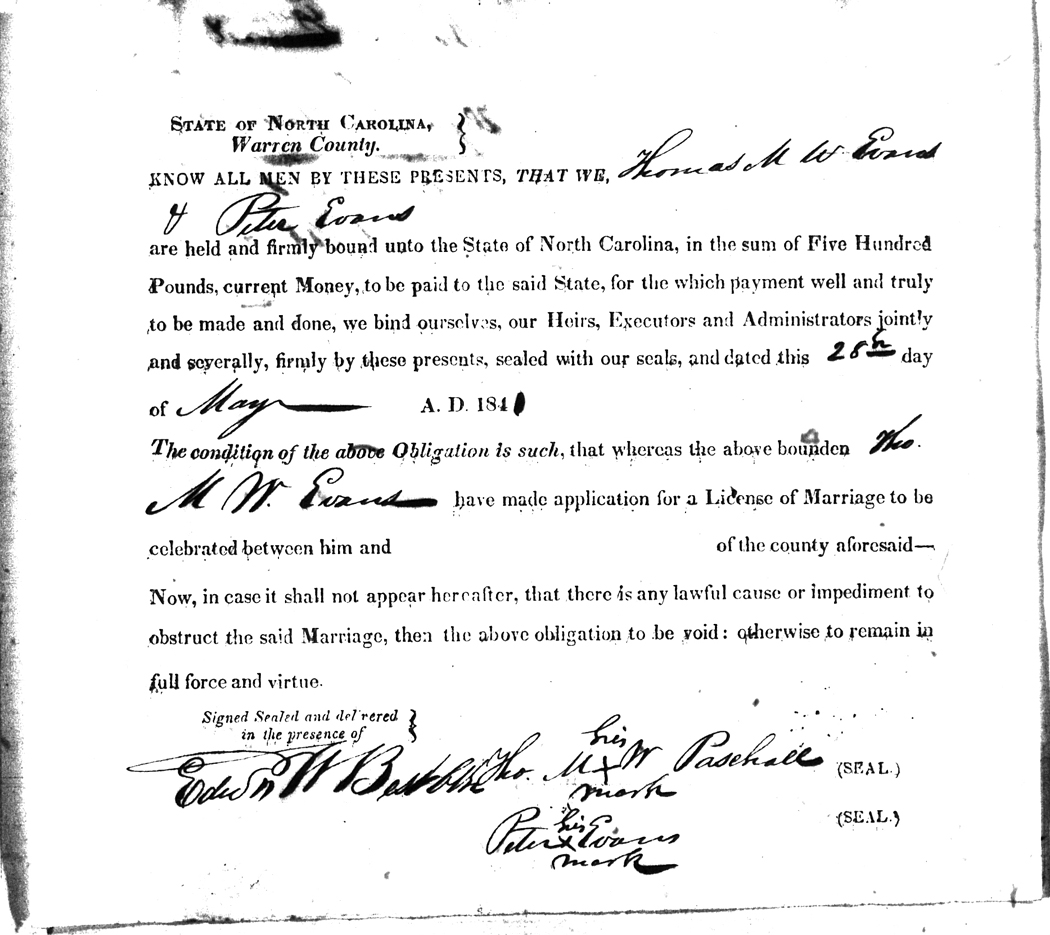 STATE OF NORTH CAROLINA,
Warren County.
KNOW ALL MEN BY THESE PRESENTS, THAT WE, Thomas M W Evans
& Peter Evans
are held and firmly bound unto the State of North Carolina, in the sum of Five Hundred
Pounds, current Money, to be paid to the said State, for the which payment well and truly
to be made and done, we bind ourselves, our Heirs, Executors and Administrators jointly
and severally, firmly by these presents, sealed with our seals, and dated this 28th day
of May A. D. 184
The condition of the above Obligation is such, that whereas the above bounden Tho.
M W. Evans have made application for a License of Marriage to be
celebrated between him and of the county aforesaid—
Now, in case it shall not appear hereafter, that there is any lawful cause or impediment to
obstruct the said Marriage, then the above obligation to be void: otherwise to remain in
full force and virtue.
Signed Sealed and delivered
in the presence of
Tho. M his W Paschall (SEAL.)
X
mark
(SEAL.)
his
Peter x Evans
mark